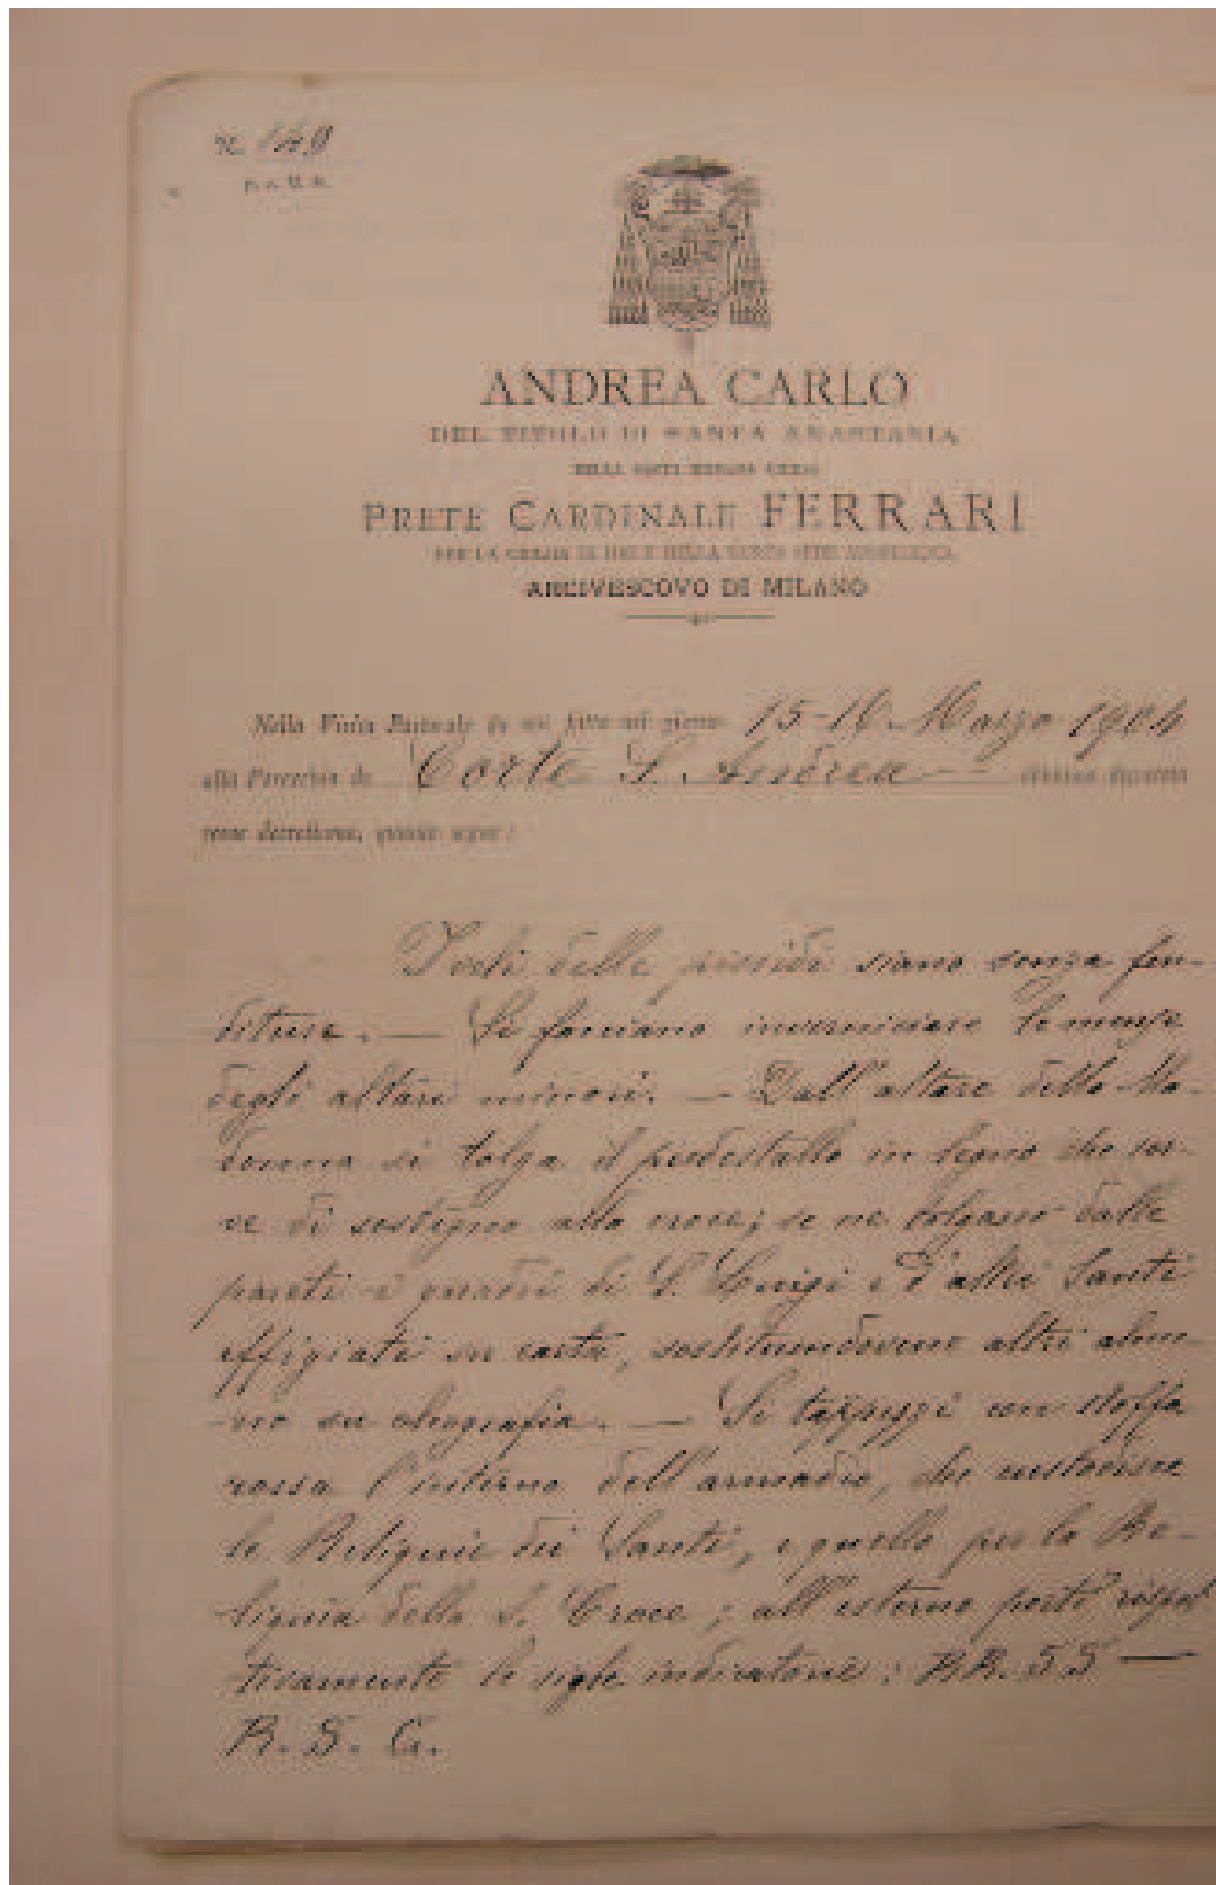 N. 149
ANDREA CARLO
DEL TITOLO DI SANTA ANASTASIA
DELLA SANTA ROMANA CHIESA
PRETE CARDINALE FERRARI
PER LA GRAZIA DI DIO E DELLA SANTA SEDE APOSTOLICA
ARCIVESCOVO DI MILANO
Nella Visita Pastorale da noi fatta nel giorno 15-16 Marzo 1904
alla Parrocchia di Corte S. Andrea
decretiamo, quanto segue:
delle pissidi siano senza fen-
diture. — Si facciano inverniciare le mense
degli altari minori. — Dall'altare della Ma-
donna si tolga il piedestallo in legno che ser-
ve di sostegno alla croce; se ne tolgano dalle
pareti i quadri di S. Luigi e d'altri Santi
effigiati su carta, sostituendovene altri alme-
no su oleografia. — Si tappezzi con stoffa
rossa l'interno dell'armadio, che custodisce
le Reliquie dei Santi, e quello per la Re-
liquia della S. Croce; all'esterno porti rispet
tivamente le sigle indicatorie: RR. SS —
R. S. C.